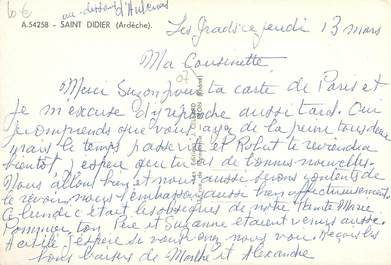 60 €
au-dessus d'Aubenas
A.5425B - SAINT DIDIER (Ardèche).
Les Grads ce jeudi 13 mars
Ma Cousinette
07
Merci Suzon pour ta carte de Paris et
je m'excuse d'y répondre aussi tard. Oui
je comprends que vous ayez de la peine tous deux
mais le temps passe vite et Robert te reviendra
bientôt, j'espère que tu as de bonnes nouvelles.
Nous allons bien et nous aussi serons contents de
le revoir, nous l'embrassons aussi bien affectueusement
Ce lundi c'était les obsèques de notre tante Marie
Pommier, ton Père et Suzanne étaient venus aussi.
A cet été j'espère si vous venez nous voir. Reçois les
bons baisers de Marthe et Alexandre